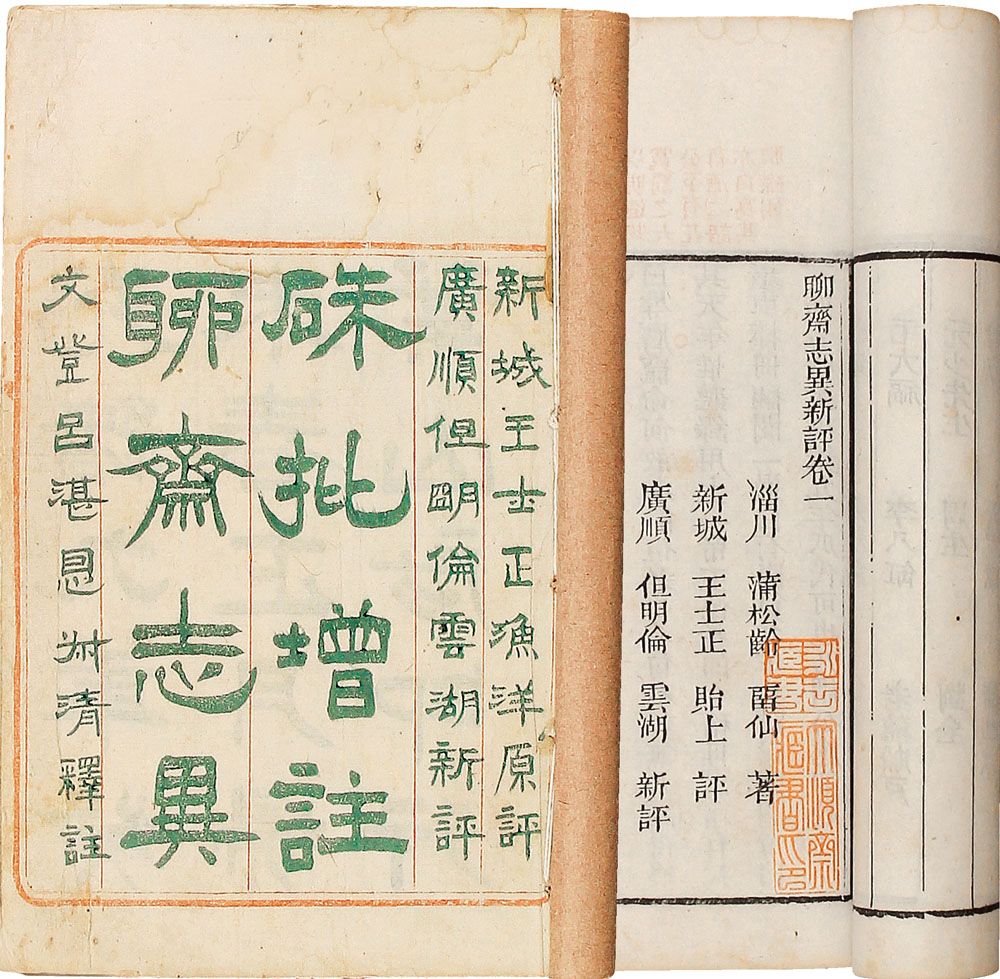 新城王士正漁洋原評
廣順但明倫雲湖新評
硃批增註
聊齋志異
文登呂湛恩叔清釋註
聊齋志異新評卷一
淄川 蒲松齡 畱仙 著
新城 王士正 貽上 評
廣順 但明倫 雲湖 新評